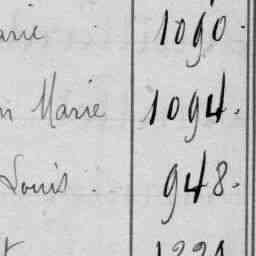 arie 1090.
n Marie 1094.
Louis . 948.